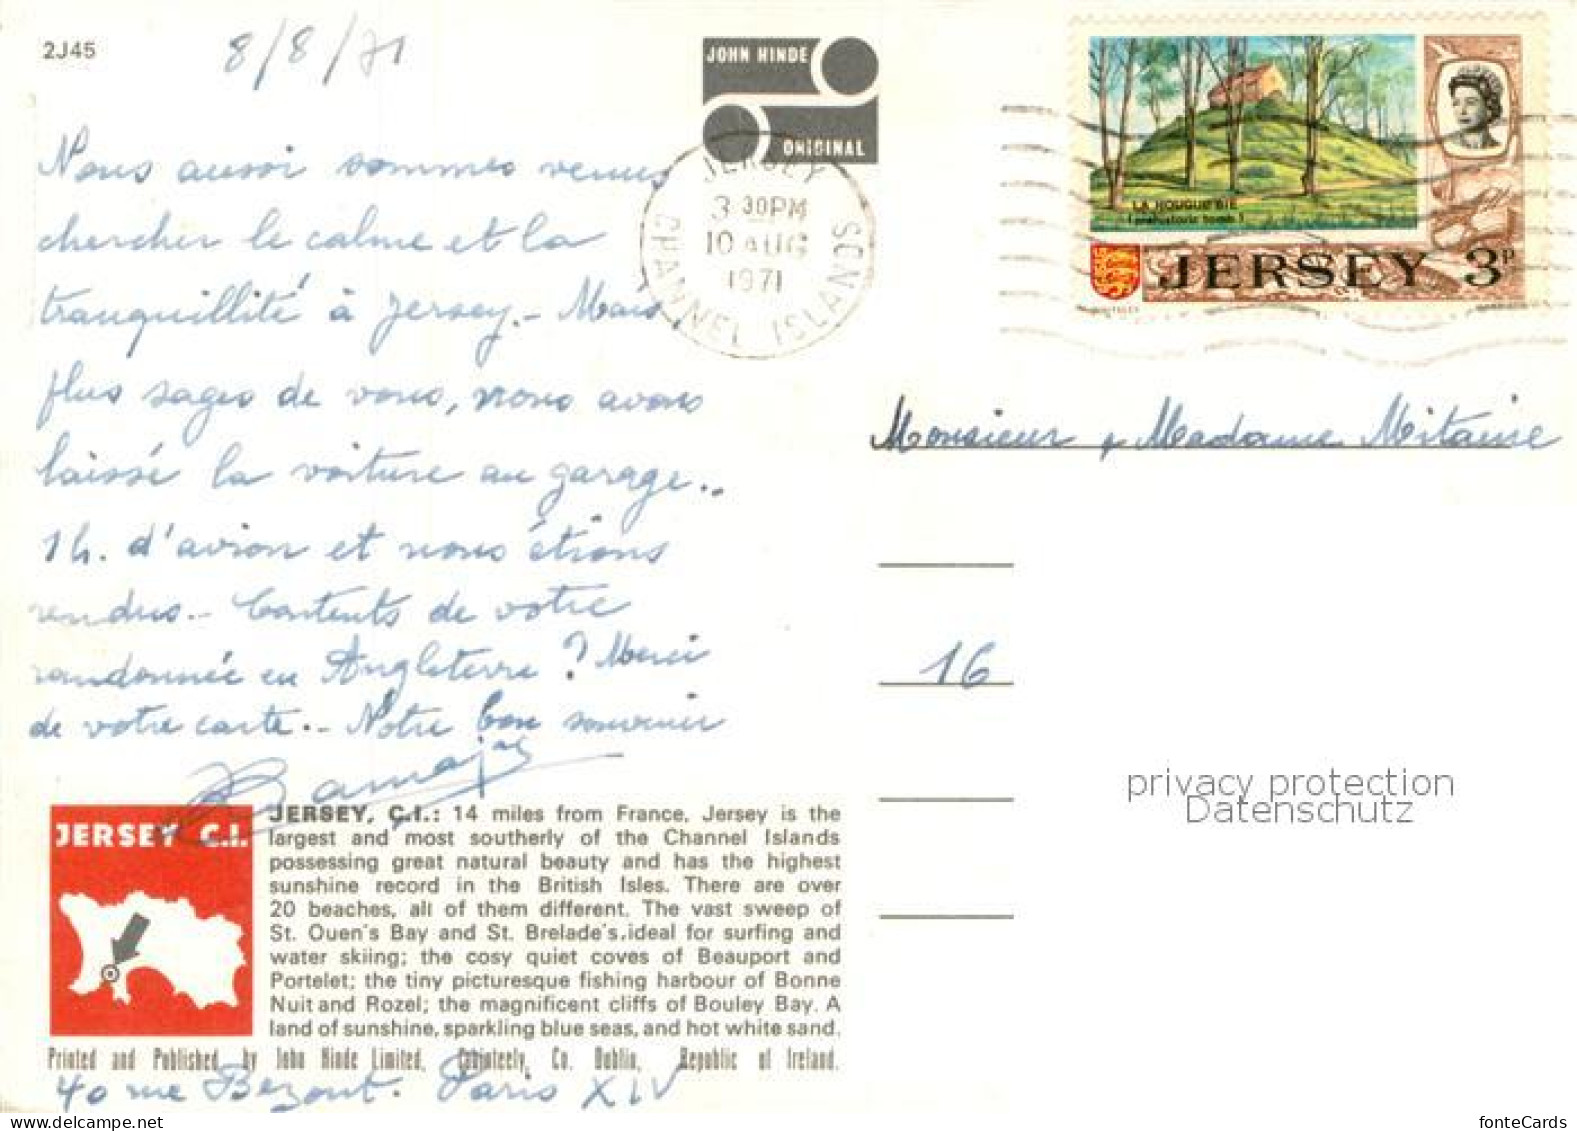 2J45
8/8/71
JOHN HINDE
ORIGINAL
Nous aussi sommes venus
chercher le calme et la
tranquillité à Jersey.- Mais
plus sages de vous, nous avons
laissé la voiture au garage..
1h. d'avion et nous étions
rendus.- Contents de votre
randonnée en Angleterre ? Merci
de votre carte.- Notre bon souvenir
JERSEY
3 30PM
10 AUG
1971
CHANNEL ISLANDS
LA HOUGUE BIE
(prehistoric tomb)
JERSEY 3P
Monsieur & Madame Mitaine
16
privacy protection
Datenschutz
JERSEY C.I.
JERSEY, C.I.: 14 miles from France, Jersey is the
largest and most southerly of the Channel Islands
possessing great natural beauty and has the highest
sunshine record in the British Isles. There are over
20 beaches, all of them different. The vast sweep of
St. Ouen's Bay and St. Brelade's, ideal for surfing and
water skiing; the cosy quiet coves of Beauport and
Portelet; the tiny picturesque fishing harbour of Bonne
Nuit and Rozel; the magnificent cliffs of Bouley Bay. A
land of sunshine, sparkling blue seas, and hot white sand.
Printed and Published by John Hinde Limited, Cabinteely, Co. Dublin, Republic of Ireland.
40 rue Bezout. Paris XIV
fonteCards